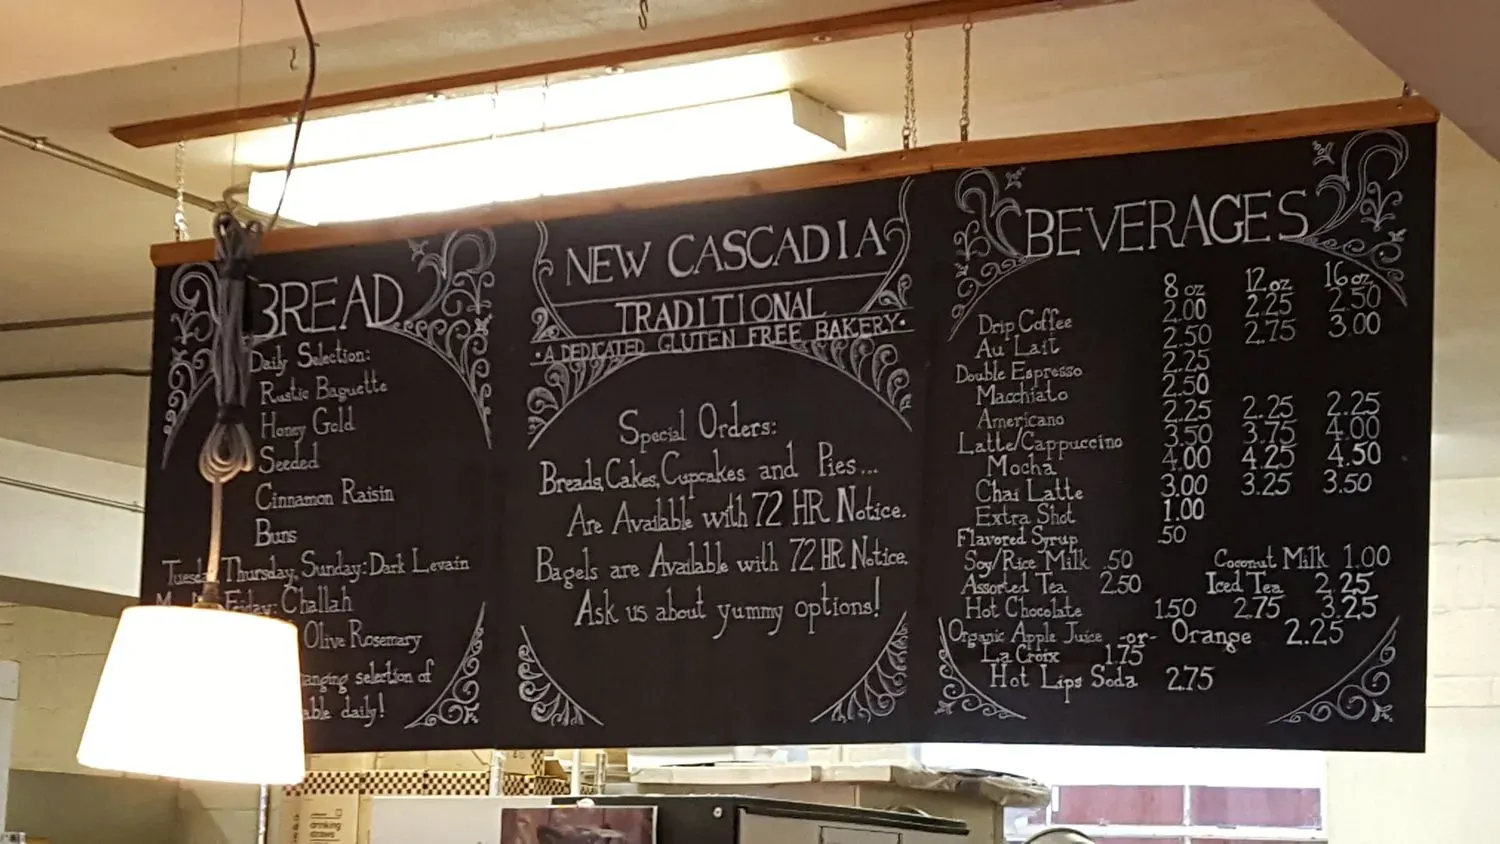 BREAD
Daily Selection:
Rustic Baguette
Honey Gold
Seeded
Cinnamon Raisin
Buns
Thursday, Sunday: Dark Levain
Friday: Challah
Olive Rosemary
selection of
daily!
NEW CASCADIA
TRADITIONAL
• A DEDICATED GLUTEN FREE BAKERY •
Special Orders:
Breads, Cakes, Cupcakes and Pies...
Are Available with 72 HR Notice.
Bagels are Available with 72 HR Notice.
Ask us about yummy options!
BEVERAGES
8 oz 12 oz 16 oz
Drip Coffee 2.00 2.25 2.50
Au Lait 2.50 2.75 3.00
Double Espresso 2.25
Macchiato 2.50
Americano 2.25 2.25 2.25
Latte/Cappuccino 3.50 3.75 4.00
Mocha 4.00 4.25 4.50
Chai Latte 3.00 3.25 3.50
Extra Shot 1.00
Flavored Syrup .50
Soy/Rice Milk .50 Coconut Milk 1.00
Assorted Tea 2.50 Iced Tea 2.25
Hot Chocolate 1.50 2.75 3.25
Organic Apple Juice -or- Orange 2.25
La Croix 1.75
Hot Lips Soda 2.75
drinking
straws